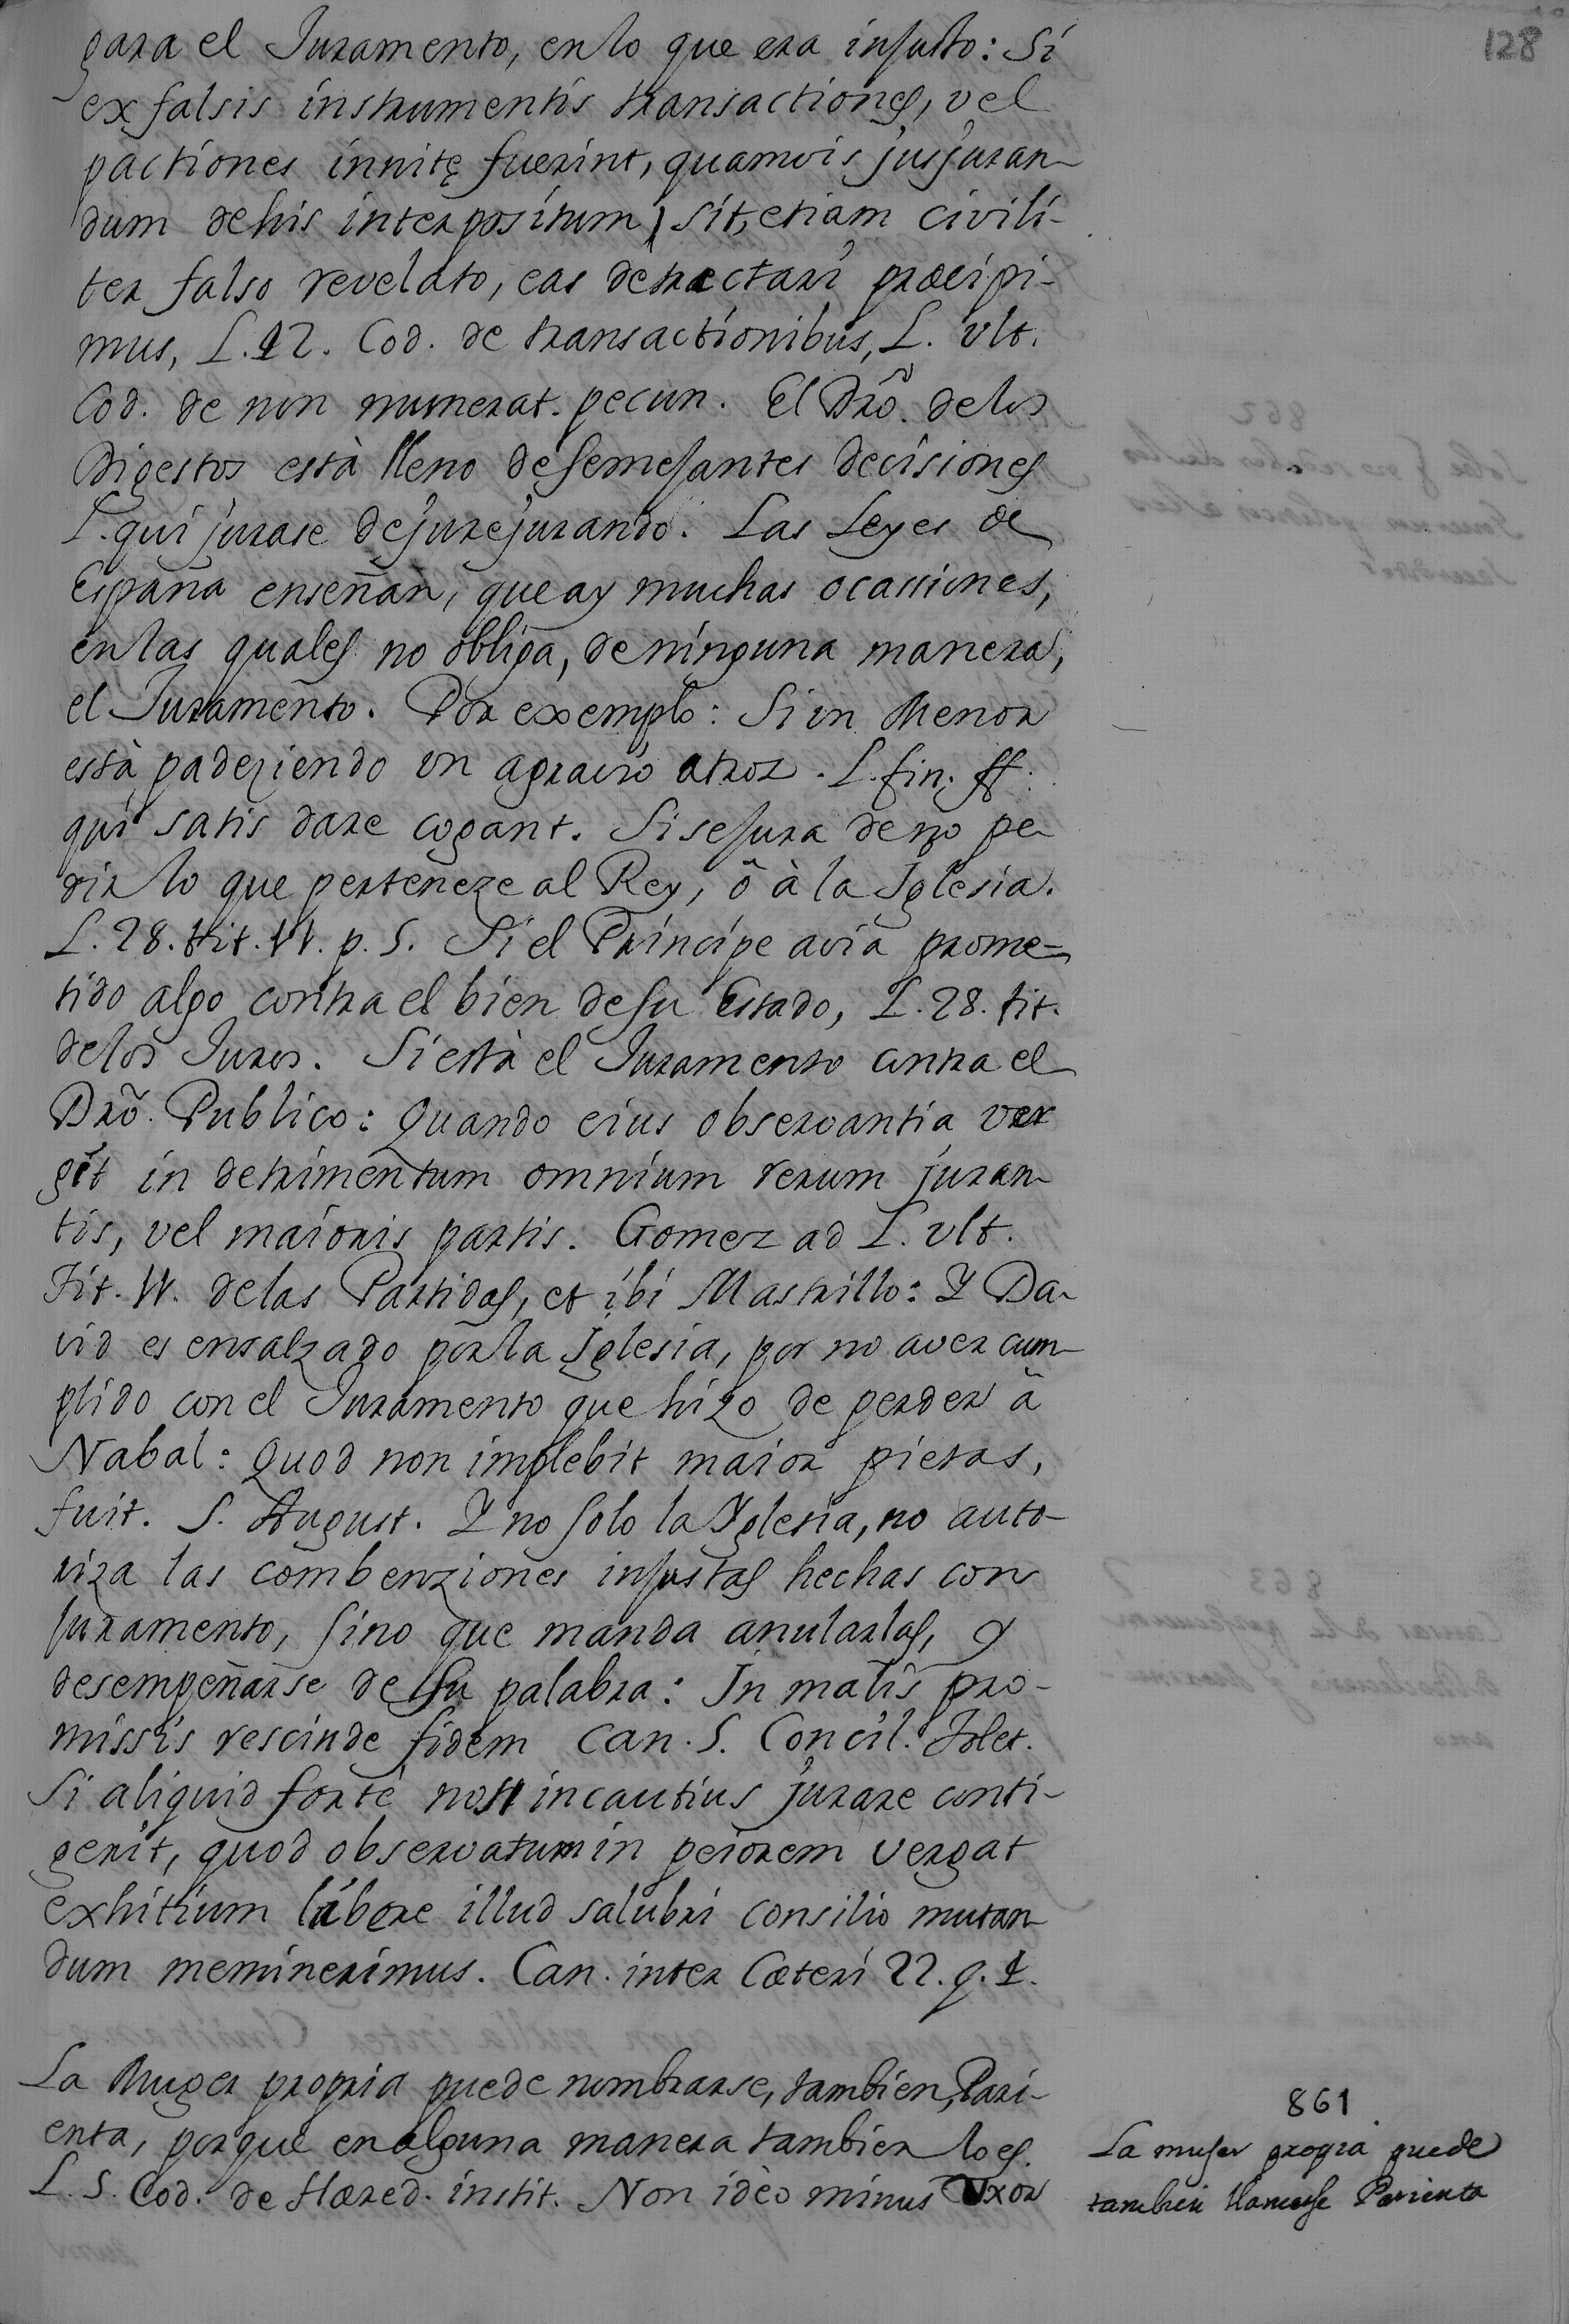 128
gara el Juramento, en lo que era injusto: Si
ex falsis instrumentis transactiones, vel
pactiones initę fuerint, quamvis jusjuran-
dum dehis interpositum sit, etiam civili-
ter falso revelato, eas detractari præcipi-
mus, L. 42. Cod. de transactionibus, L. vlt.
Cod. de non numerat. pecun. El Dr̃o. delos
Digestos està lleno desemejantes decisiones
L. qui jurase dejurejurando. Las Leyes de
España enseñan, que ay muchas ocassiones,
enlas quales no obliga, deninguna manera,
el Juramento. Por exemplo: Si vn Menor
està padeziendo vn agravio atroz. L. fin. ff.
qui satis dare cogant. Si se jura deno pe-
dir lo que perteneze al Rey, ô à la Iglesia.
L. 28. tit. 11. p. 5. Si el Principe avia prome-
tido algo contra el bien desu Estado, L. 28. tit.
delos Juros. Si està el Juramento contra el
Dr̃o. Publico: Quando eius observantia ver
git in detrimentum omnium rerum juran-
tis, vel maioris partis. Gomez ad L. vlt.
Tit. 11. delas Partidas, et ibi Mastrillo: Y Da-
vid es ensalzado por la Iglesia, por no aver cum-
plido con el Juramento que hizo de perder â
Nabal: Quod non implebit maior pietas,
fuit. S. August. Y no solo la Yglesia, no auto-
riza las combenziones injustas hechas con
juramento, sino que manda anularlas, y
desempeñarse de su palabra: In malis pro-
missis rescinde fidem Can. 5. Concil. Tolet.
Si aliquid fortè nos incautius jurare conti-
gerit, quod observatum in peiorem vergat
exhitium labore illud salubri consilio mutan-
dum meminerimus. Can. inter Cæteri 22. q. 4.
La Muger propria puede nombrarse, tambien, Pari-
enta, porque en alguna manera tambien lo es.
L. 5. Cod. de Hæred. instit. Non ideò minus Uxor
861.
La mujer propia puede
tambien llamarse Parienta